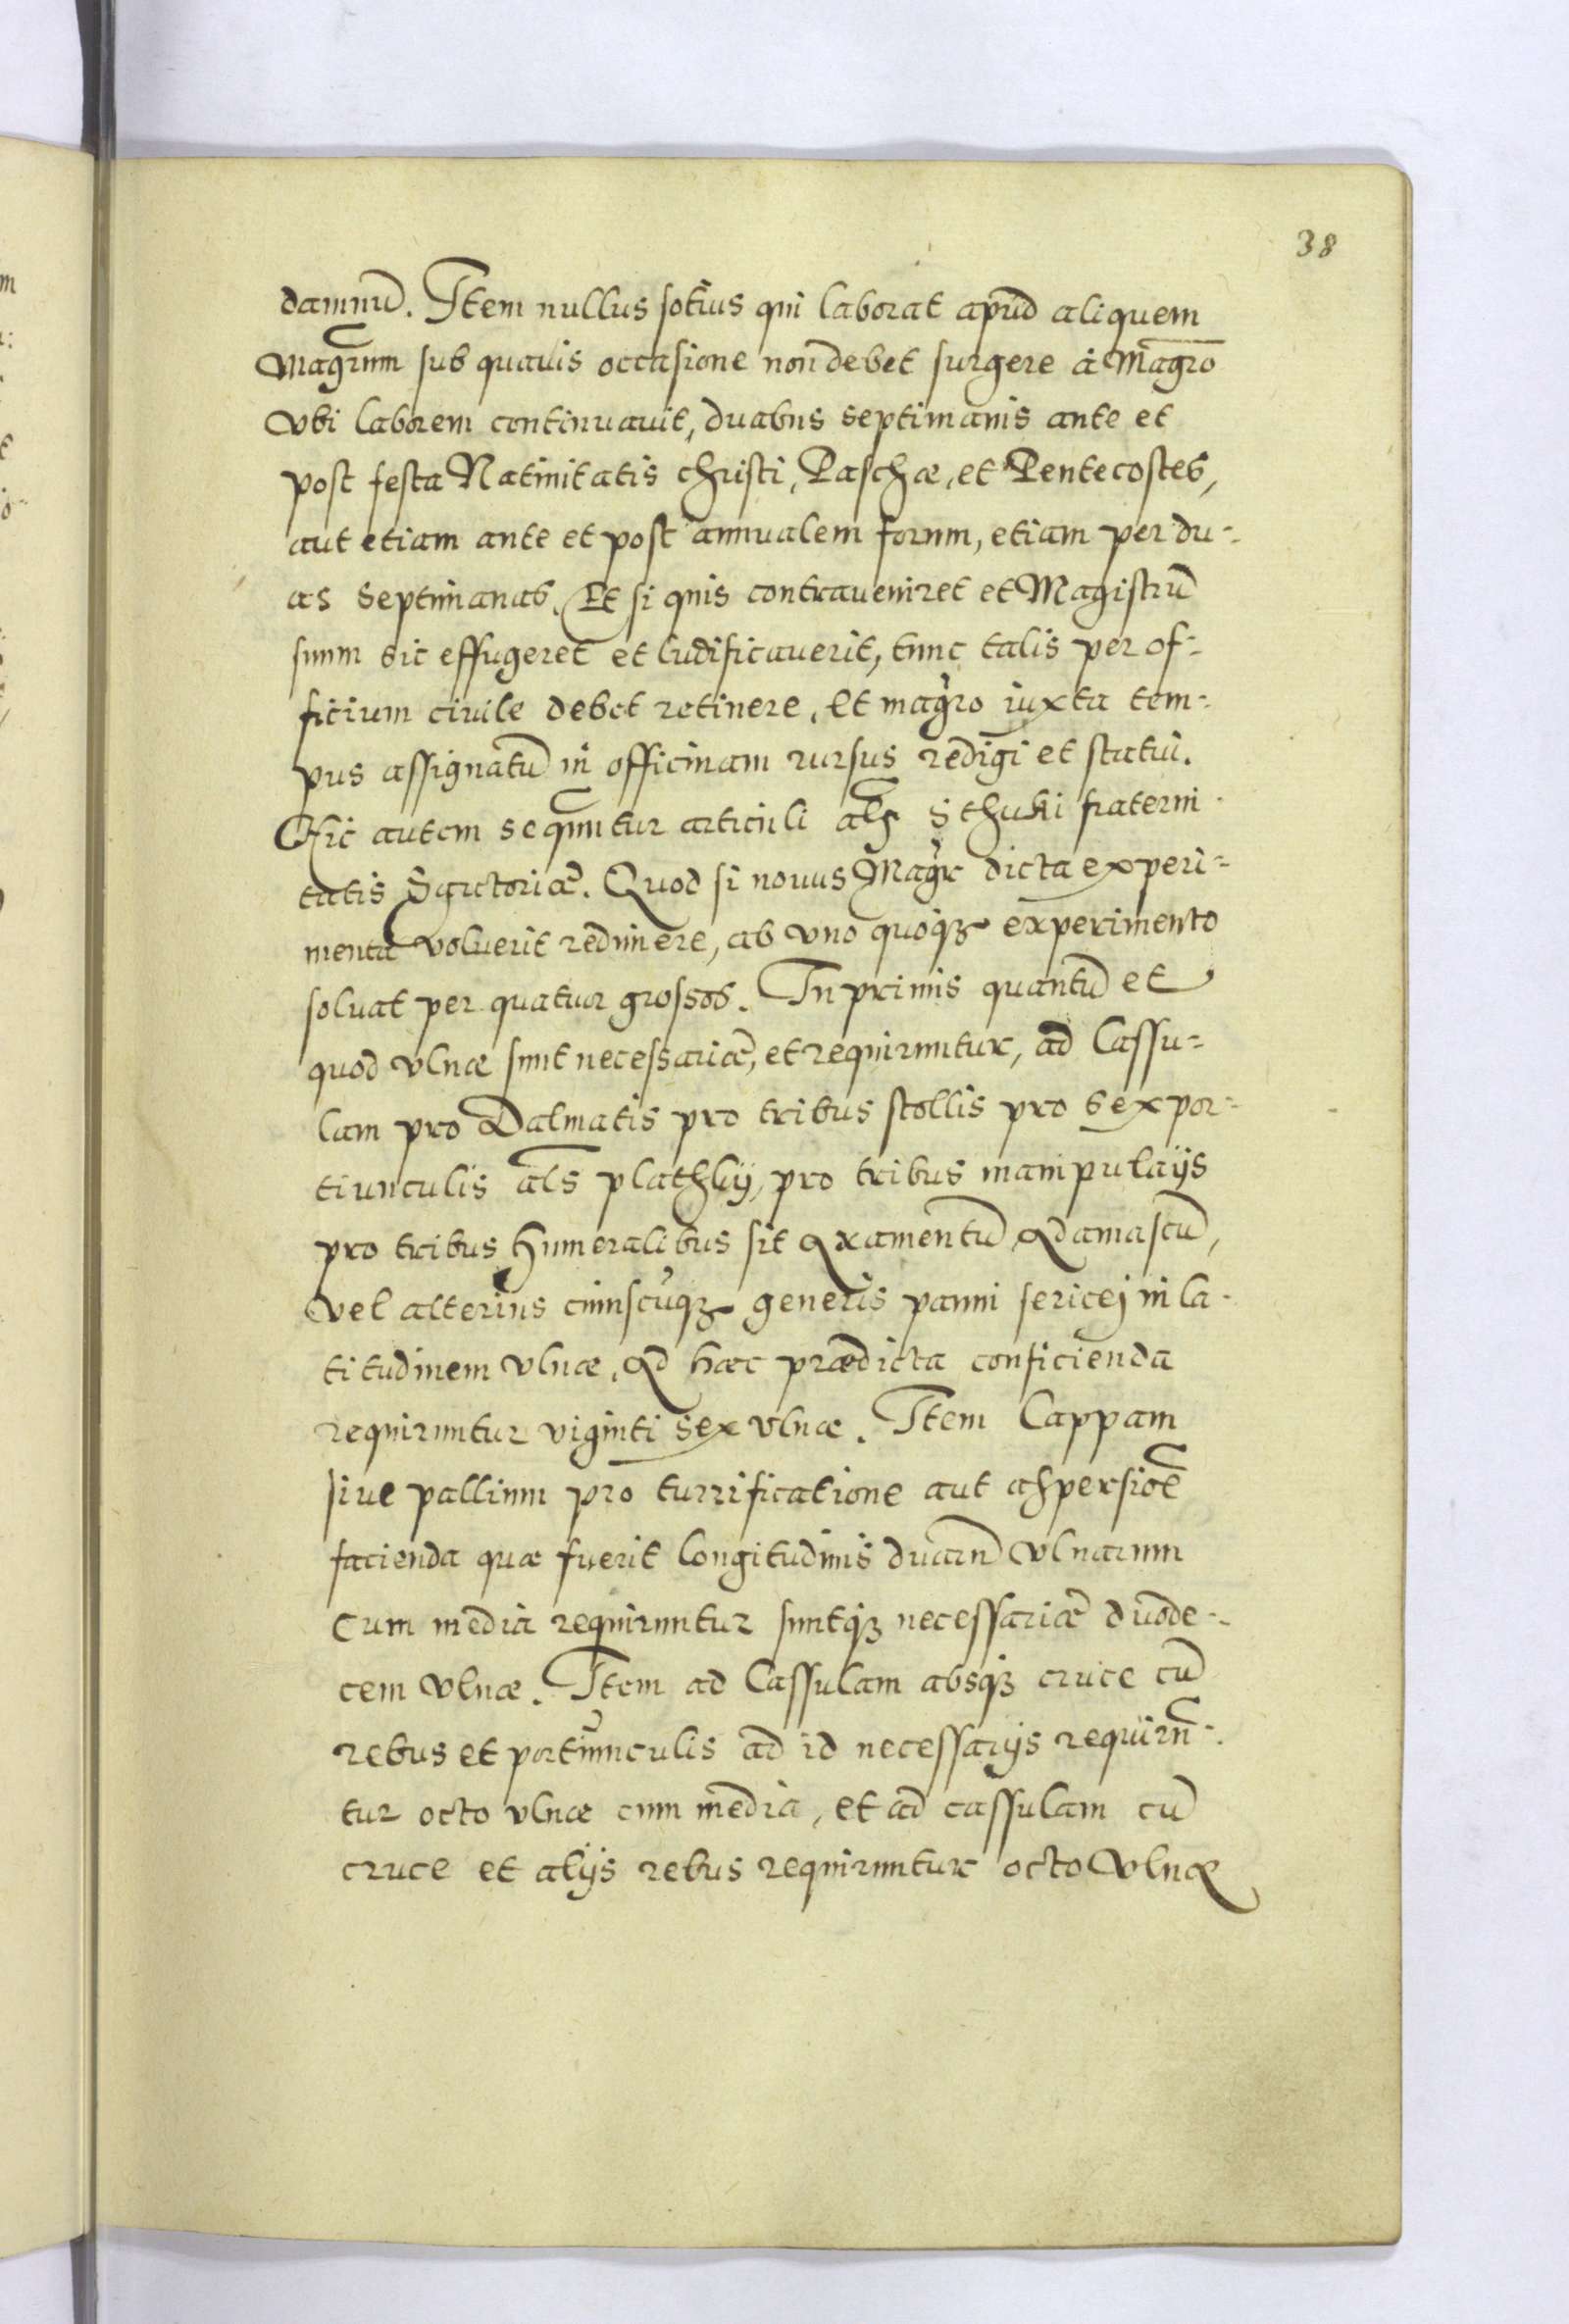 38
damnū. Item nullus sotius qui laborat apud aliquem
Magrum sub quauis occasione non debet surgere à Magro
vbi laborem continuauit, duabus septimanis ante et
post festa Natiuitatis christi, Paschæ, et Pentecostes,
aut etiam ante et post annualem forum, etiam per du-
as septimanas. Et si quis contraueniret et Magistrū
suum sic effugeret et ludificauerit, tunc talis per of-
ficium ciuile debet retinere, et magro iuxta tem-
pus assignatū in officinam rursus redigi et statui.
Hic autem sequuntur articuli als Sthuki fraterni-
tatis Sartoriæ. Quod si nouus Magr dicta experi-
menta voluerit redimere, ab vno quoqʒ experimento
soluat per quatuor grossos. In primis quantū et
quod vlnæ sunt necessariæ, et requiruntur, ad Cassu-
lam pro Dalmatis pro tribus stollis pro sex por-
tiunculis als plathky, pro tribus manipulaijs
pro tribus humeralibus sit Axamentū Adamascū,
vel alterius cuiuscūqʒ generis panni sericej in la-
titudinem vlnæ, Ad hæc prædicta conficienda
requiruntur viginti sex vlnæ. Item Cappam
siue pallium pro turrificatione aut aspersiōe
facienda quæ fuerit longitudinis duarū vlnarum
cum media requiruntur suntqʒ necessariæ duode-
cem vlnæ. Item ad Cassulam absqʒ cruce cū
rebus et portiunculis ad id necessarijs requirū-
tur octo vlnæ cum media, et ad cassulam cū
cruce et alijs rebus requiruntur octo vlnæ